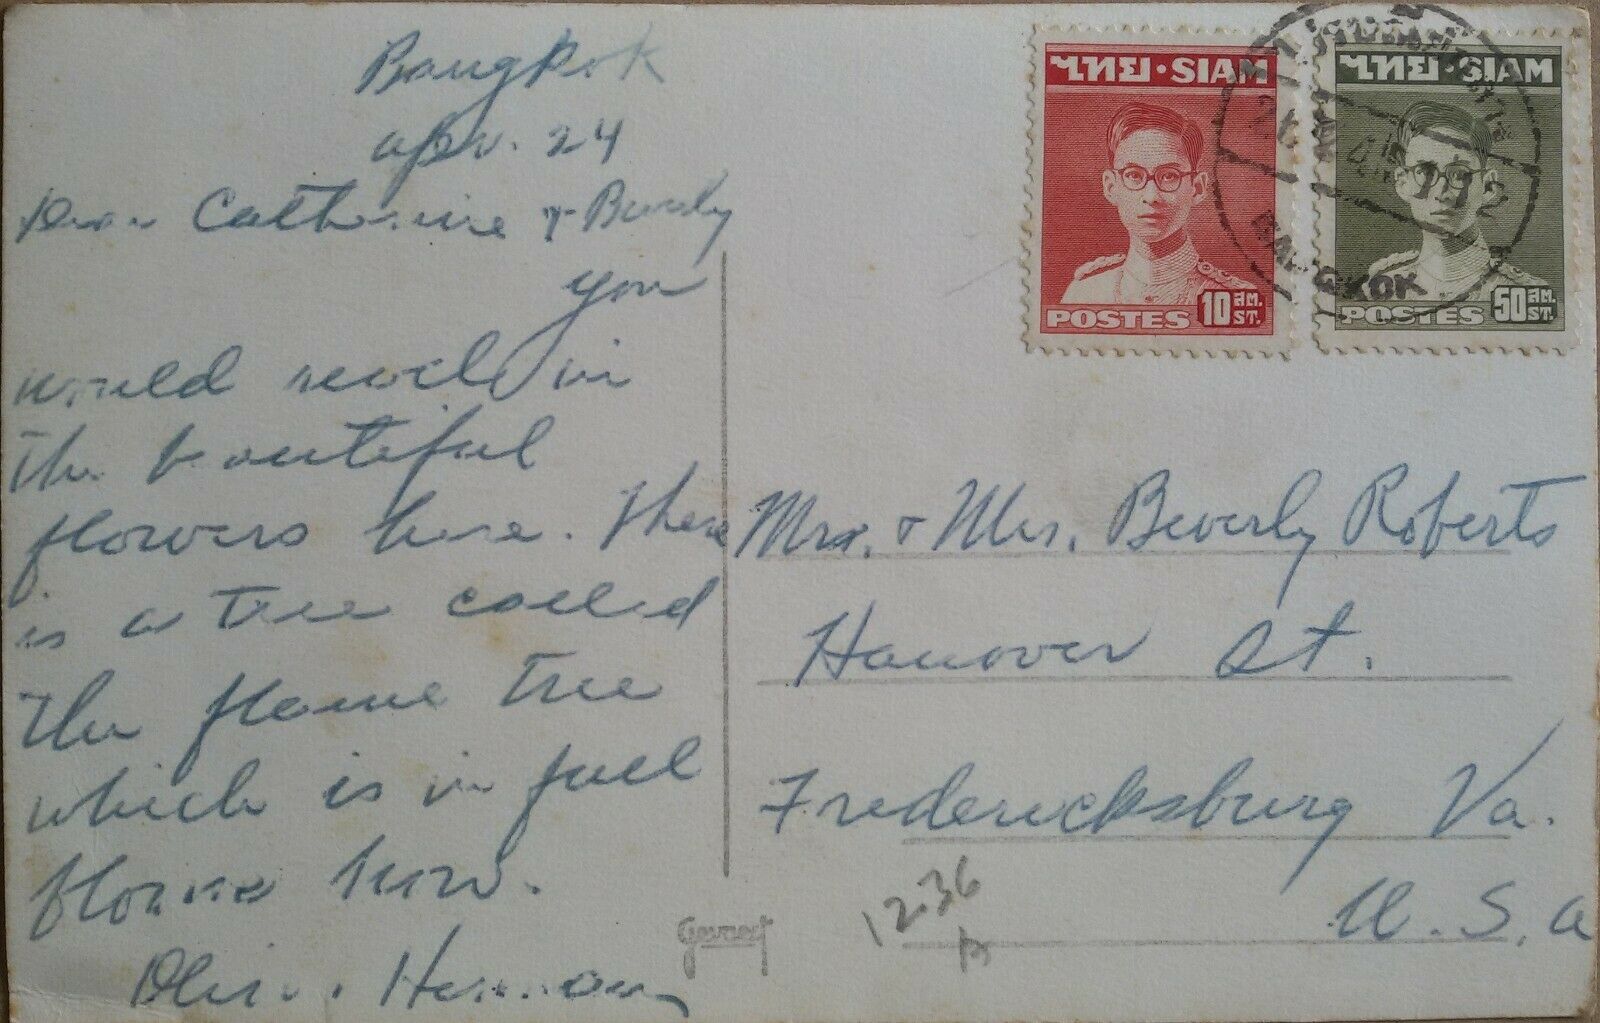 Bangkok
Apr. 24
Dear Catherine & Beverly
you
would revel in
the beautiful
flowers here. There
is a tree called
the flame tree
which is in full
flame now.
Herman
ไทย · SIAM
POSTES 10 สต. ST.
ไทย · SIAM
POSTES 50 สต. ST.
BANGKOK
Mr. & Mrs. Beverly Roberts
Hanover St.
Fredericksburg Va.
U. S. A
12-36
Gevaert